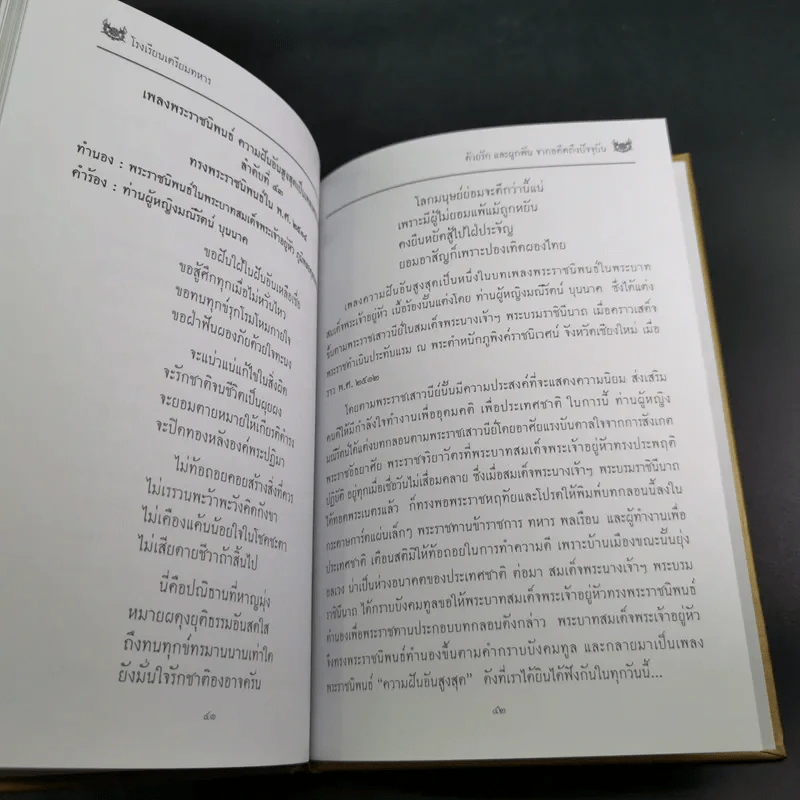 โรงเรียนเตรียมทหาร
เพลงพระราชนิพนธ์ ความฝันอันสูงสุด
ลำดับที่ ๔๓
ทรงพระราชนิพนธ์ใน พ.ศ. ๒๕๑๔
ทำนอง : พระราชนิพนธ์ในพระบาทสมเด็จพระเจ้าอยู่หัว
คำร้อง : ท่านผู้หญิงมณีรัตน์ บุนนาค
ขอฝันใฝ่ในฝันอันเหลือเชื่อ
ขอสู้ศึกทุกเมื่อไม่หวั่นไหว
ขอทนทุกข์รุกโรมโหมกายใจ
ขอฝ่าฟันผองภัยด้วยใจทะนง
จะแน่วแน่แก้ไขในสิ่งผิด
จะรักชาติจนชีวิตเป็นผุยผง
จะยอมตายหมายให้เกียรติดำรง
จะปิดทองหลังองค์พระปฏิมา
ไม่ท้อถอยคอยสร้างสิ่งที่ควร
ไม่เรรวนพะว้าพะวังคิดกังขา
ไม่เคืองแค้นน้อยใจในโชคชะตา
ไม่เสียดายชีวาถ้าสิ้นไป
นี่คือปณิธานที่หาญมุ่ง
หมายผดุงยุติธรรมอันสดใส
ถึงทนทุกข์ทรมานนานเท่าใด
ยังมั่นใจรักชาติองอาจครัน
๔๑
ด้วยรัก และผูกพัน จากอดีตถึงปัจจุบัน
โลกมนุษย์ย่อมจะดีกว่านี้แน่
เพราะมีผู้ไม่ยอมแพ้แม้ถูกหยัน
คงยืนหยัดสู้ไปใฝ่ประจัญ
ยอมอาสัญก็เพราะปองเทิดผองไทย
เพลงความฝันอันสูงสุดเป็นหนึ่งในบทเพลงพระราชนิพนธ์ในพระบาท
สมเด็จพระเจ้าอยู่หัว เนื้อร้องนั้นแต่งโดย ท่านผู้หญิงมณีรัตน์ บุนนาค ซึ่งได้แต่ง
ขึ้นตามพระราชเสาวนีย์ในสมเด็จพระนางเจ้าฯ พระบรมราชินีนาถ เมื่อคราวเสด็จ
พระราชดำเนินประทับแรม ณ พระตำหนักภูพิงค์ราชนิเวศน์ จังหวัดเชียงใหม่ เมื่อ
ราว พ.ศ. ๒๕๑๒
โดยตามพระราชเสาวนีย์นั้นมีความประสงค์ที่จะแสดงความนิยม ส่งเสริม
คนดีให้มีกำลังใจทำงานเพื่ออุดมคติ เพื่อประเทศชาติ ในการนี้ ท่านผู้หญิง
มณีรัตน์ได้แต่งบทกลอนตามพระราชเสาวนีย์โดยอาศัยแรงบันดาลใจจากการสังเกต
พระราชอัธยาศัย พระราชจริยาวัตรที่พระบาทสมเด็จพระเจ้าอยู่หัวทรงประพฤติ
ปฏิบัติ อยู่ทุกเมื่อเชื่อวันไม่เสื่อมคลาย ซึ่งเมื่อสมเด็จพระนางเจ้าฯ พระบรมราชินีนาถ
ได้ทอดพระเนตรแล้ว ก็ทรงพอพระราชหฤทัยและโปรดให้พิมพ์บทกลอนนี้ลงใน
กระดาษการ์ดแผ่นเล็กๆ พระราชทานข้าราชการ ทหาร พลเรือน และผู้ทำงานเพื่อ
ประเทศชาติ เตือนสติมิให้ท้อถอยในการทำความดี เพราะบ้านเมืองขณะนั้นยุ่ง
อลเวง น่าเป็นห่วงอนาคตของประเทศชาติ ต่อมา สมเด็จพระนางเจ้าฯ พระบรม
ราชินีนาถ ได้กราบบังคมทูลขอให้พระบาทสมเด็จพระเจ้าอยู่หัวทรงพระราชนิพนธ์
ทำนองเพื่อพระราชทานประกอบบทกลอนดังกล่าว พระบาทสมเด็จพระเจ้าอยู่หัว
จึงทรงพระราชนิพนธ์ทำนองขึ้นตามคำกราบบังคมทูล และกลายมาเป็นเพลง
พระราชนิพนธ์ “ความฝันอันสูงสุด” ดังที่เราได้ยินได้ฟังกันในทุกวันนี้...
๔๒